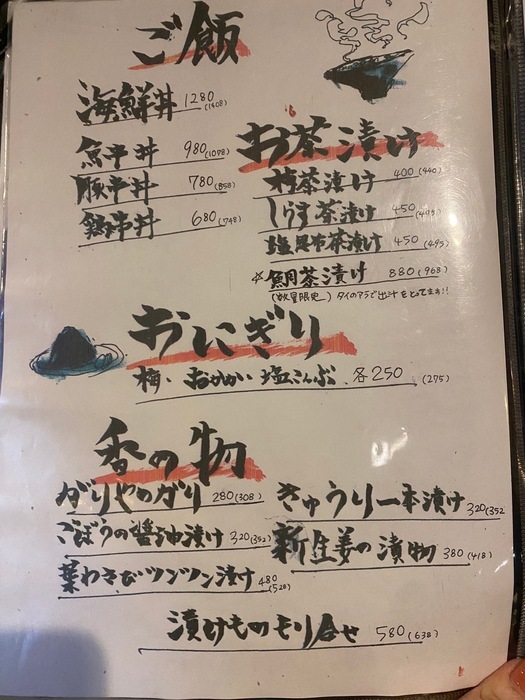 ご飯
海鮮丼 1280 (1408)
魚串丼 980 (1078)
豚串丼 780 (858)
鶏串丼 680 (748)
お茶漬け
梅茶漬け 400 (440)
しらす茶漬け 450 (495)
塩昆布茶漬け 450 (495)
☆鯛茶漬け 880 (968)
(数量限定) タイのアラで出汁をとってます!!
おにぎり
梅・おかか・塩こんぶ 各250 (275)
香の物
がりやのガリ 280 (308)
ごぼうの醤油漬け 320 (352)
葉わさびツンツン漬け 480 (528)
きゅうり一本漬け 320 (352
新生姜の漬物 380 (418)
漬けものモリ合せ 580 (638)